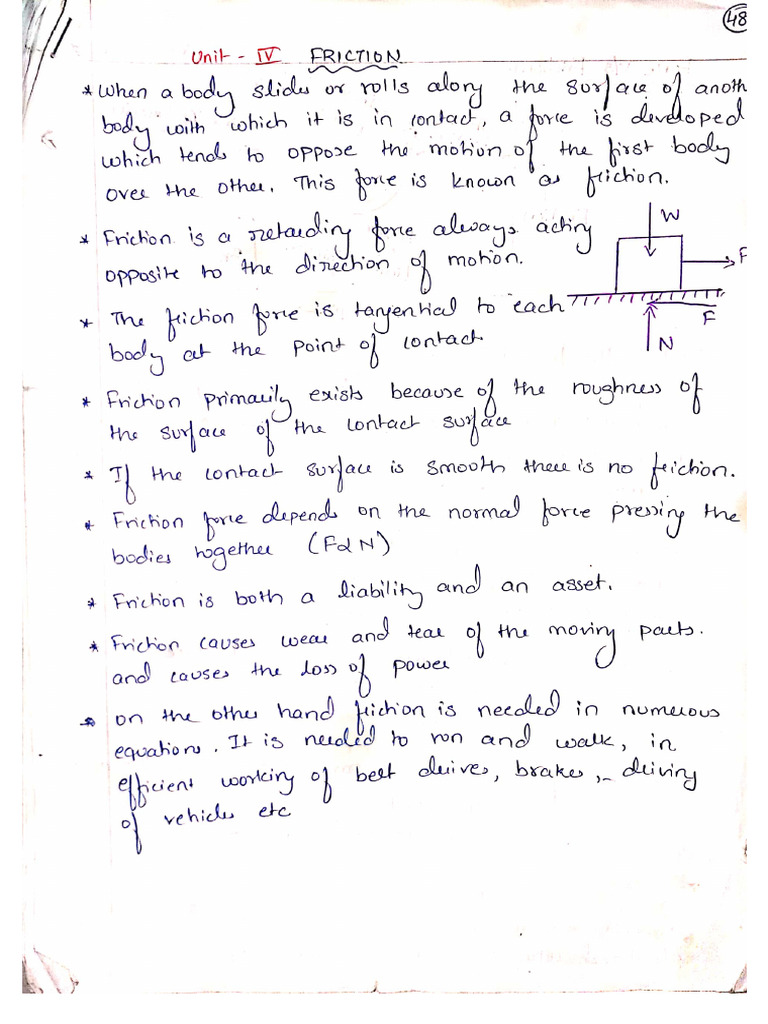 48
Unit - IV FRICTION
* When a body slides or rolls along the surface of anoth
body with which it is in contact, a force is developed
which tends to oppose the motion of the first body
over the other. This force is known as friction.
* Friction is a retarding force always acting
opposite to the direction of motion.
W
F
* The friction force is tangential to each
body at the point of contact
F
N
* Friction primarily exists because of the roughness of
the surface of the contact surface
* If the contact surface is smooth there is no friction.
* Friction force depends on the normal force pressing the
bodies together (F∝N)
* Friction is both a liability and an asset.
* Friction causes wear and tear of the moving parts.
and causes the loss of power
* on the other hand friction is needed in numerous
equation. It is needed to run and walk, in
efficient working of belt drives, brakes, - driving
of vehicles etc